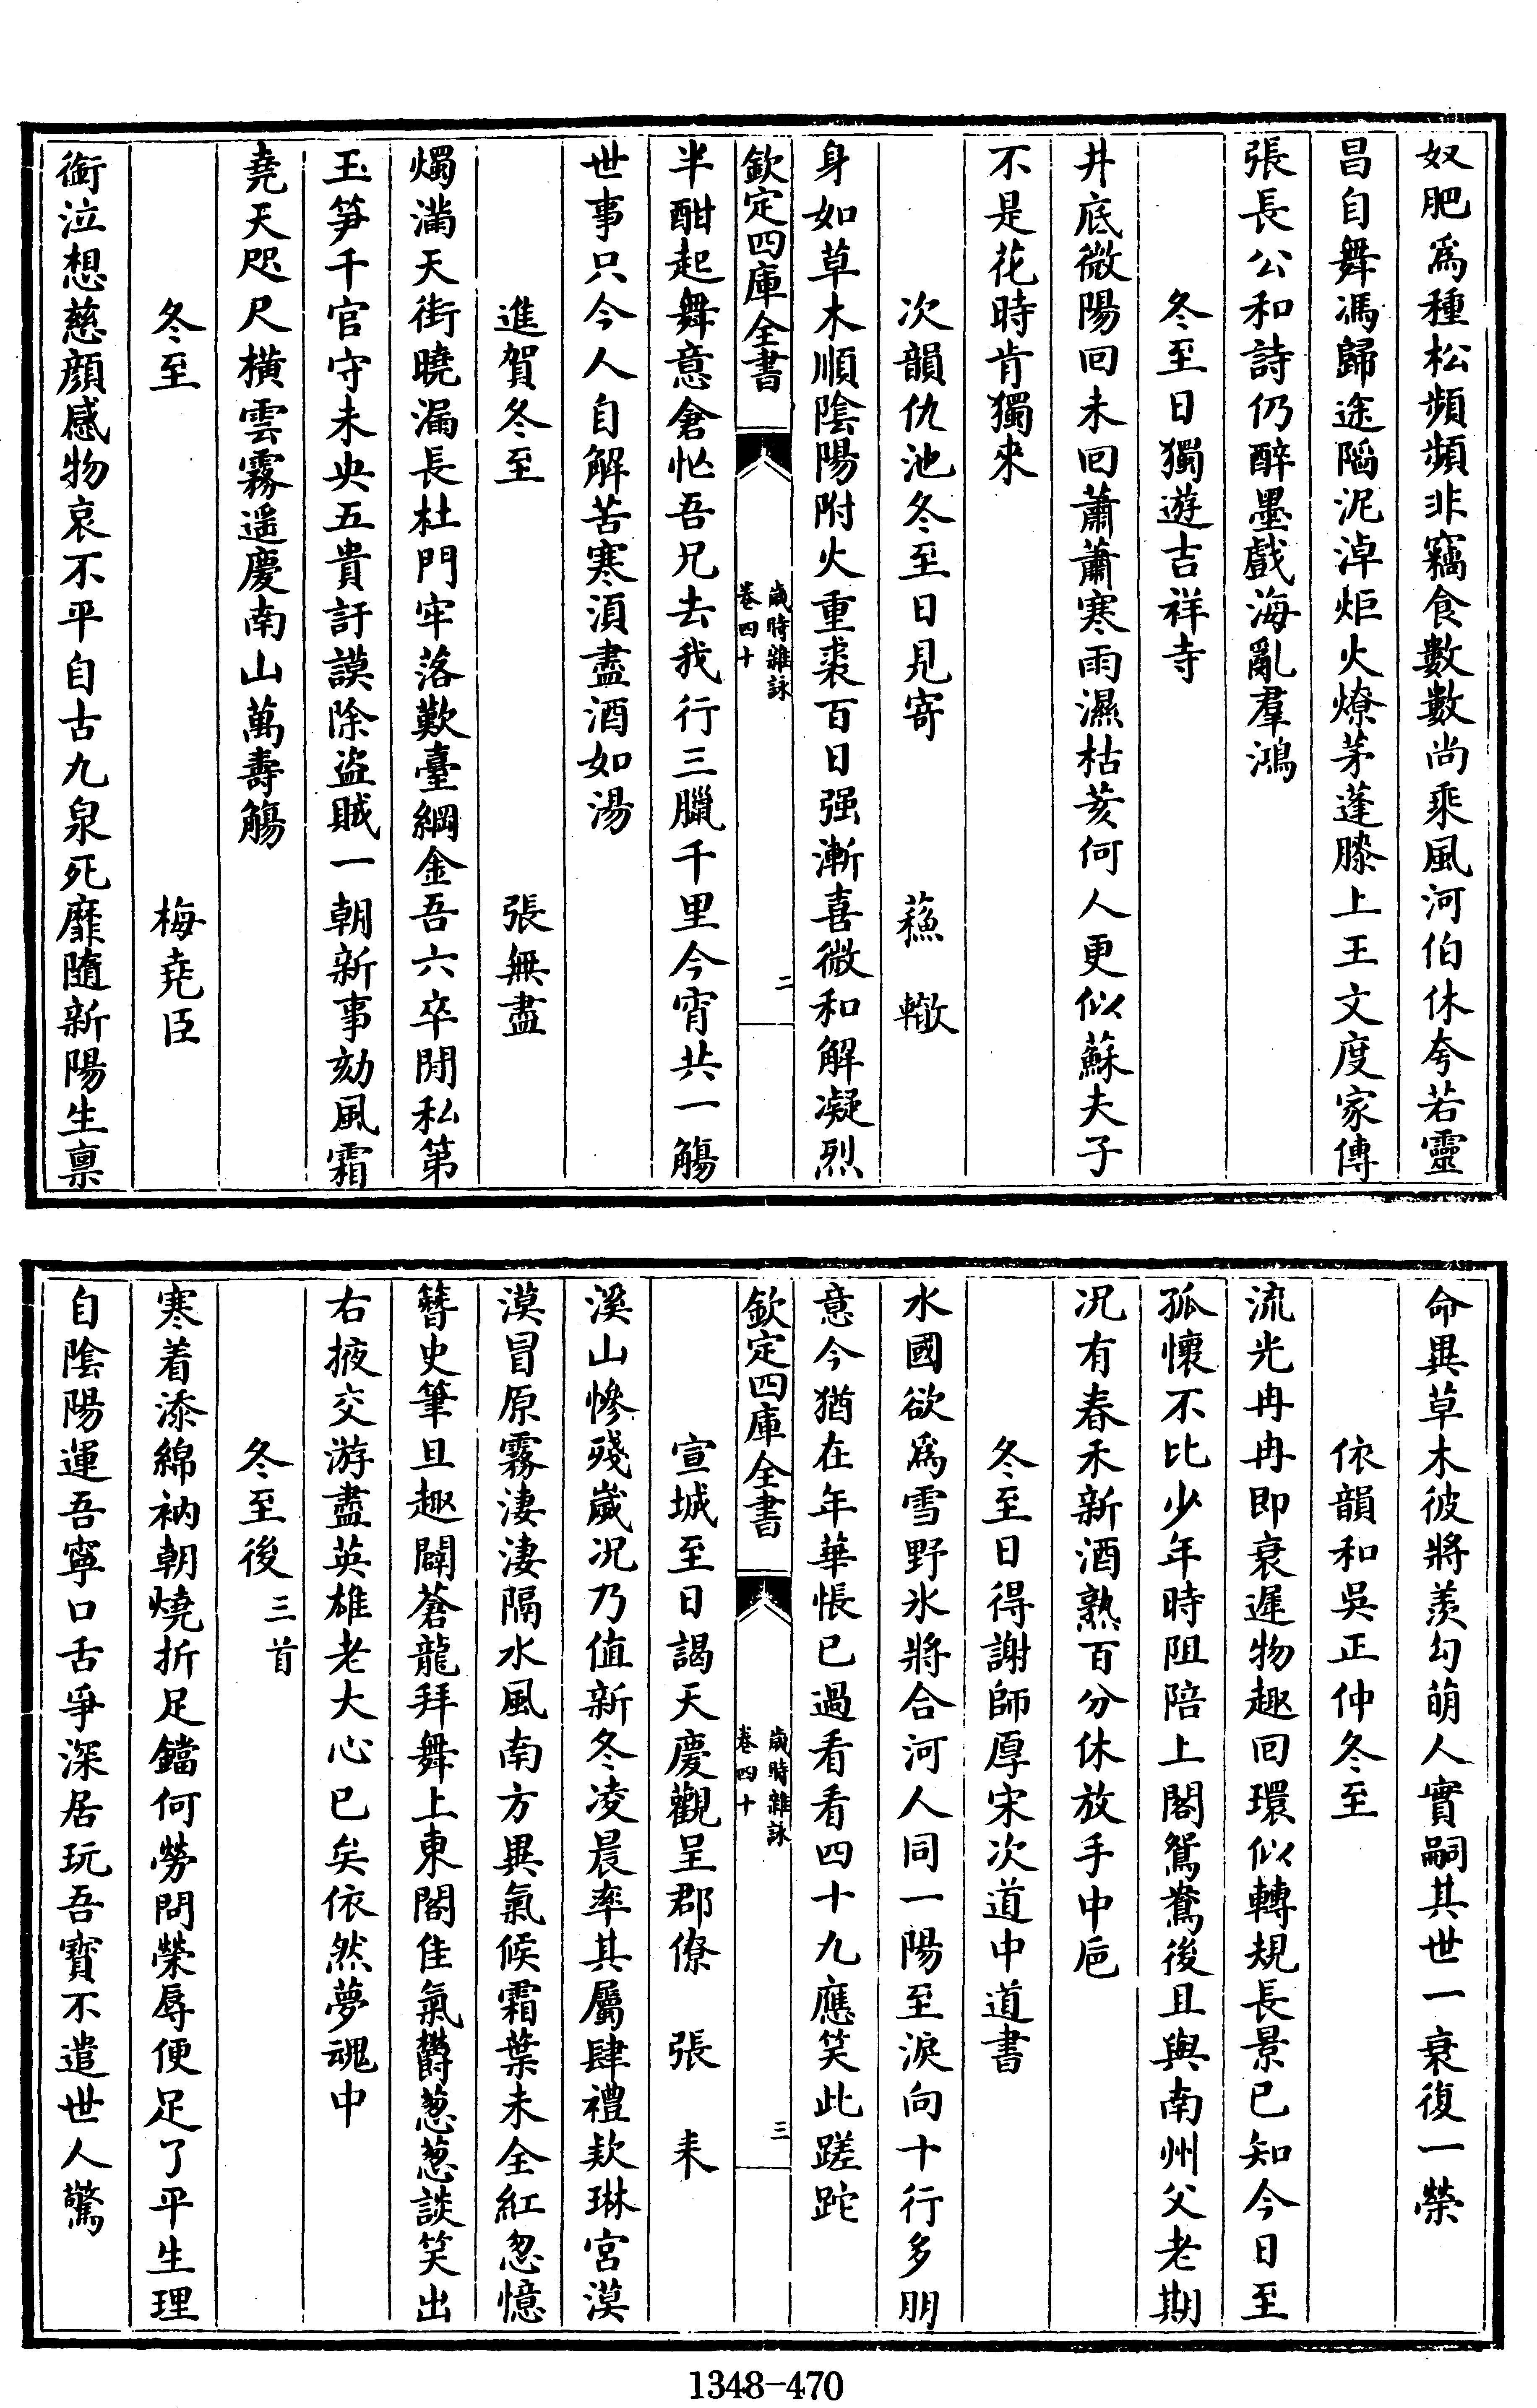 奴肥爲種松頻頻非竊食數數尚乘風河伯休夸若靈
昌自舞馮歸途陷泥淖炬火燎茅蓬膝上王文度家傳
張長公和詩仍醉墨戲海亂羣鴻
冬至日獨遊吉祥寺
井底微陽回未回蕭蕭寒雨濕枯荄何人更似蘇夫子
不是花時肯獨來
次韻仇池冬至日見寄 蘓轍
身如草木順陰陽附火重裘百日强漸喜微和解凝烈
欽定四庫全書 歲時雜詠 卷四十 二
半酣起舞意倉忙吾兄去我行三臘千里今宵共一觴
世事只今人自解苦寒須盡酒如湯
進賀冬至 張無盡
燭滿天街曉漏長杜門牢落歎臺綱金吾六卒閒私第
玉笋千官守未央五貴訏謨除盗賊一朝新事劾風霜
堯天咫尺橫雲霧遥慶南山萬壽觴
冬至 梅堯臣
銜泣想慈顔感物哀不平自古九泉死靡隨新陽生禀
命異草木彼將羨勾萌人實嗣其世一衰復一榮
依韻和吳正仲冬至
流光冉冉即衰遲物趣回環似轉規長景已知今日至
孤懷不比少年時阻陪上閣鴛鴦後且與南州父老期
况有春禾新酒熟百分休放手中巵
冬至日得謝師厚宋次道中道書
水國欲爲雪野氷將合河人同一陽至淚向十行多朋
意今猶在年華悵已過看看四十九應笑此蹉跎
欽定四庫全書 歲時雜詠 卷四十 三
宣城至日謁天慶觀呈郡僚 張耒
溪山慘殘歲况乃值新冬凌晨率其屬肆禮欵琳宮漠
漠冒原霧淒淒隔水風南方異氣候霜葉未全紅忽憶
簪史筆旦趣闢蒼龍拜舞上東閣佳氣欝葱葱談笑出
右掖交游盡英雄老大心已矣依然夢魂中
冬至後三首
寒着添綿衲朝燒折足鐺何勞問榮辱便足了平生理
自陰陽運吾寧口舌爭深居玩吾寳不遣世人驚
1348-470